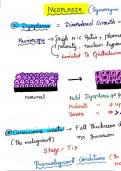 NEOPLASIA (Synonym
Dysplasia = Disordered Growth -
Microscopy → ↑ high N:C Ratio, pleomo
(polarity, nuclear hyperc
Limited To Epithelium
normal
Mild Dysplasia
Moderate
Severe
Carcinoma insitu = Full thickness
(Pre malignant) no Invasion
Stage - Tis
Premalignant Conditions